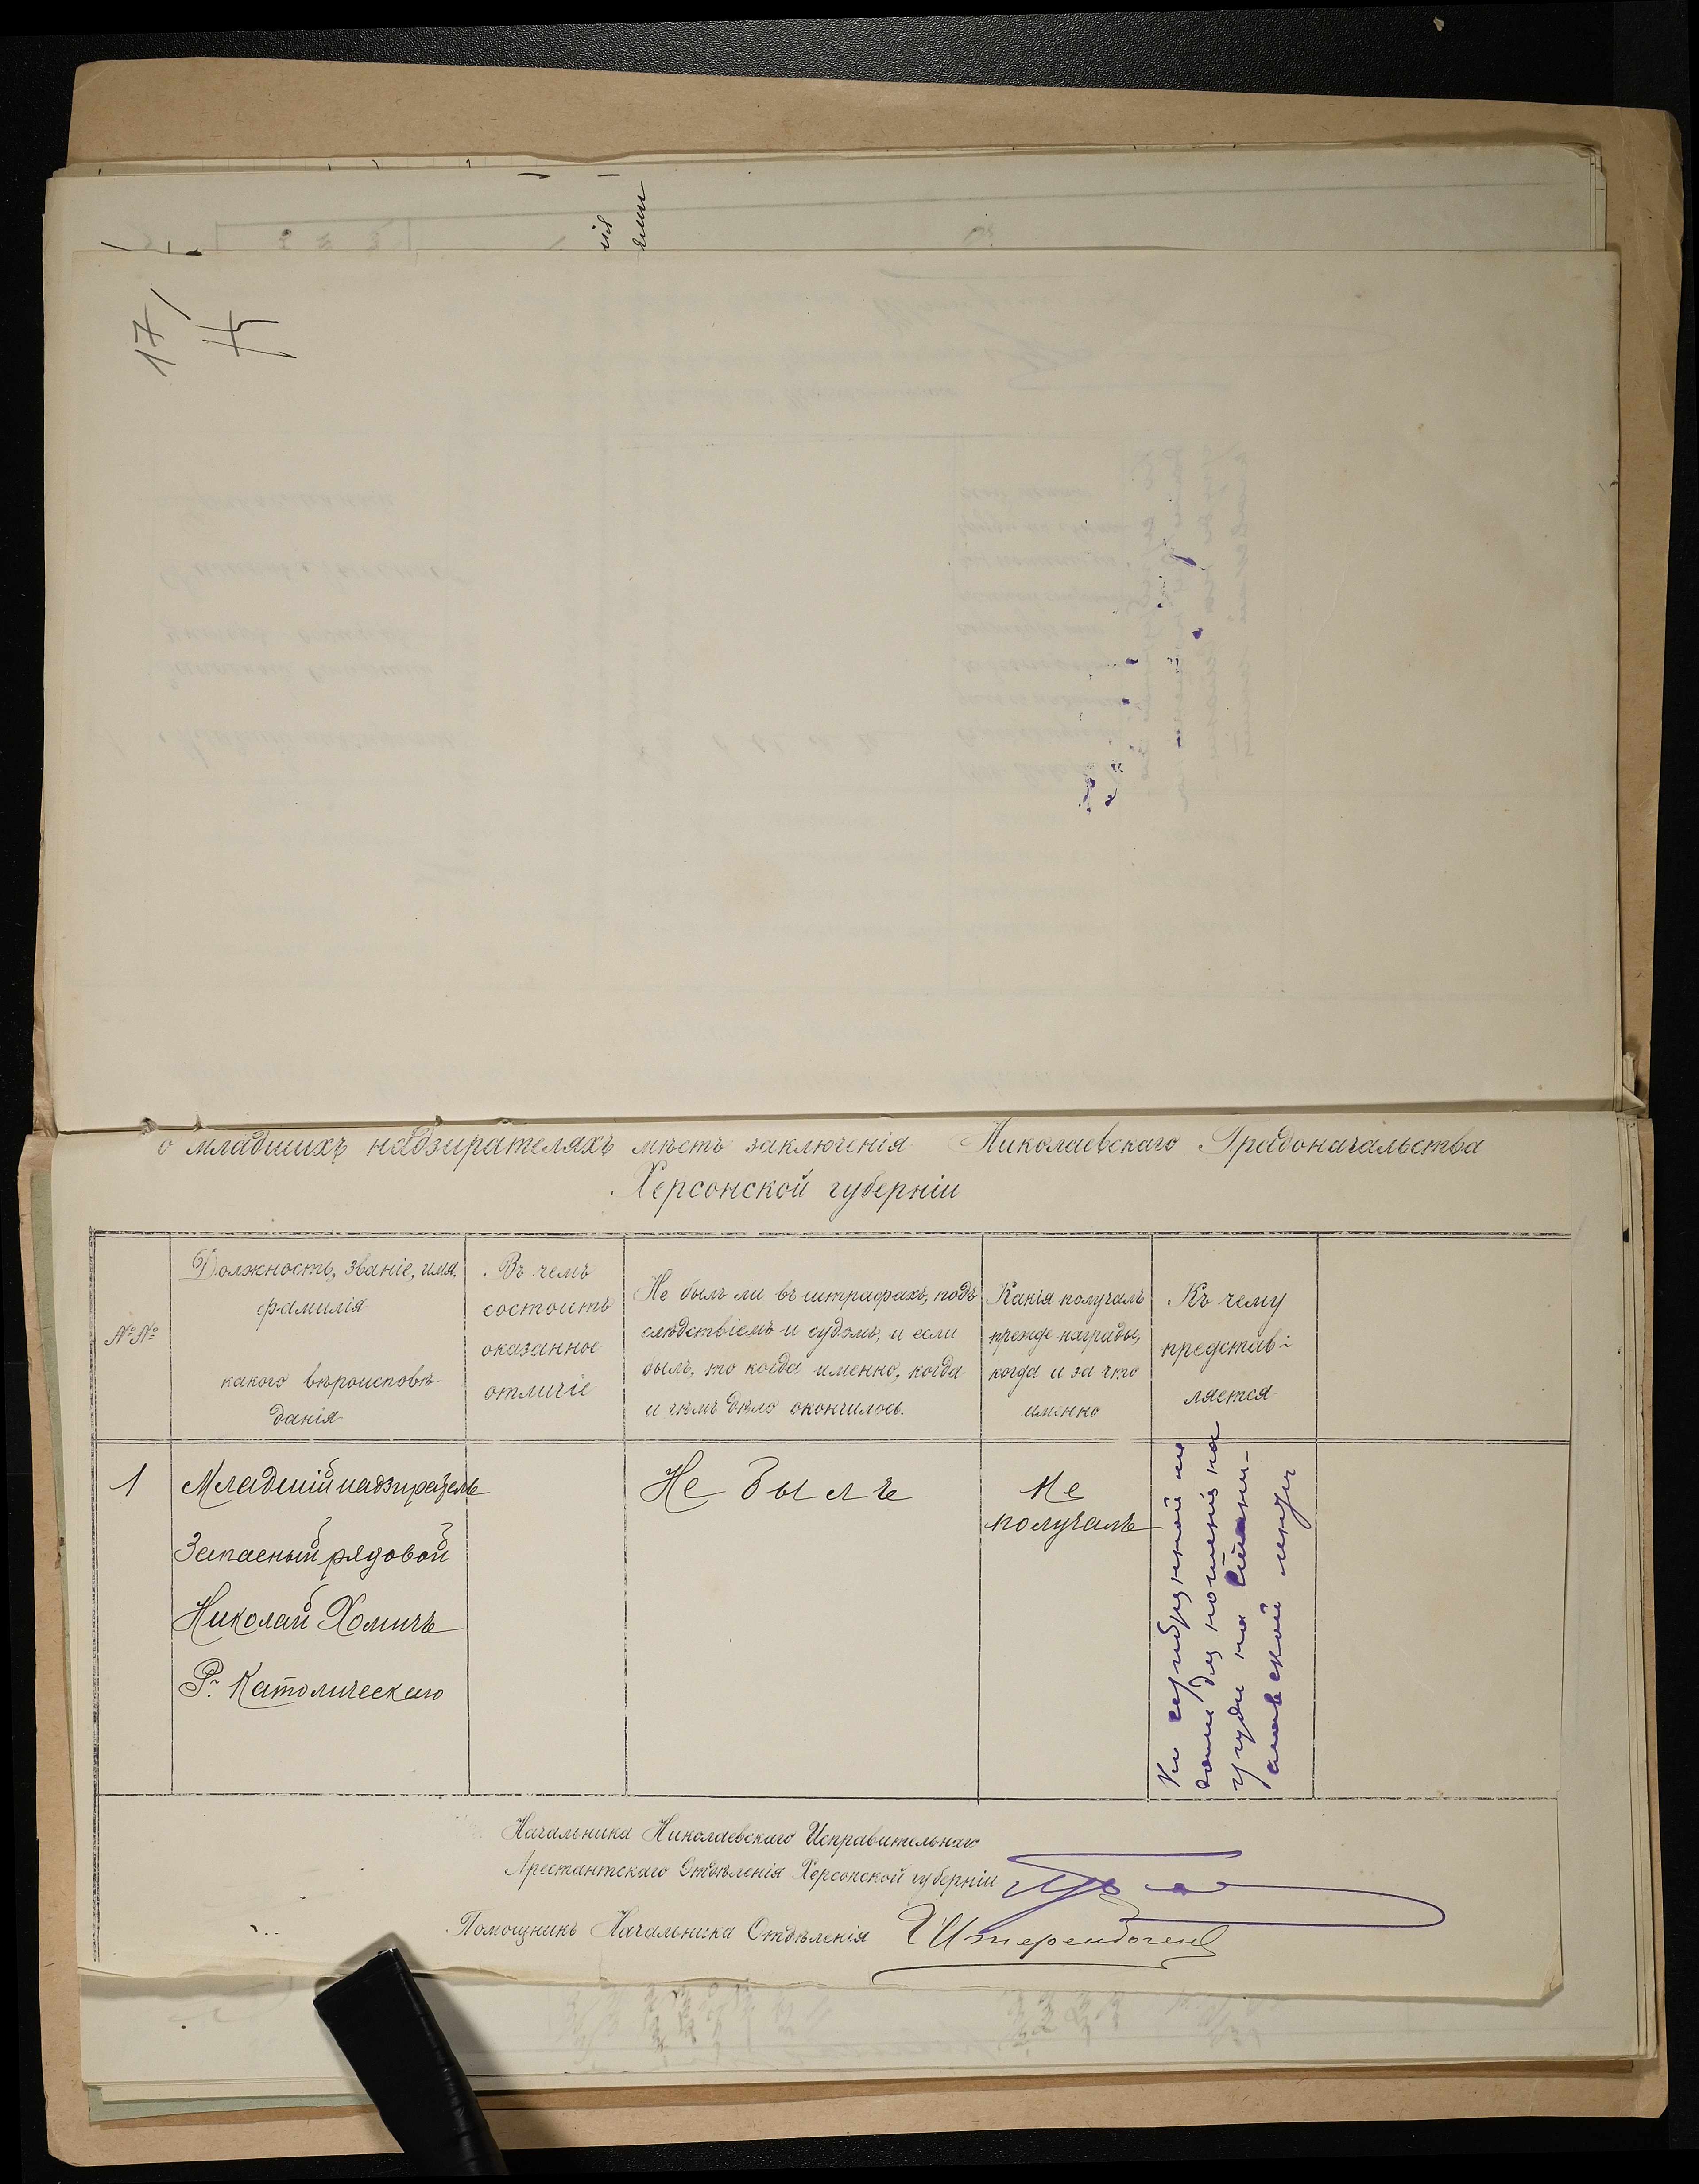 17
о младшихъ надзирателяхъ мѣстъ заключенія Николаевскаго Градоначальства
Херсонской губерніи
№№
Должность, званіе, имя,
фамилія
какого вѣроисповѣ-
данія
Въ чемъ
состоитъ
оказанное
отличіе
Не былъ ли въ штрафахъ, подъ
слѣдствіемъ и судомъ, и если
былъ, то когда именно, когда
и чѣмъ дѣло окончилось.
Какія получалъ
прежде награды,
когда и за что
именно
Къ чему
представ-
ляется
1
Младшій надзиратель
Запасный рядовой
Николай Хомичъ
Р. Католическаго
Не былъ
Не
получалъ
Къ серебрянной ме
дали для ношенія на
груди на Стани-
славской лентѣ
Начальника Николаевскаго Исправительнаго
Арестантскаго Отдѣленія Херсонской губерніи
Помощникъ Начальника Отдѣленія